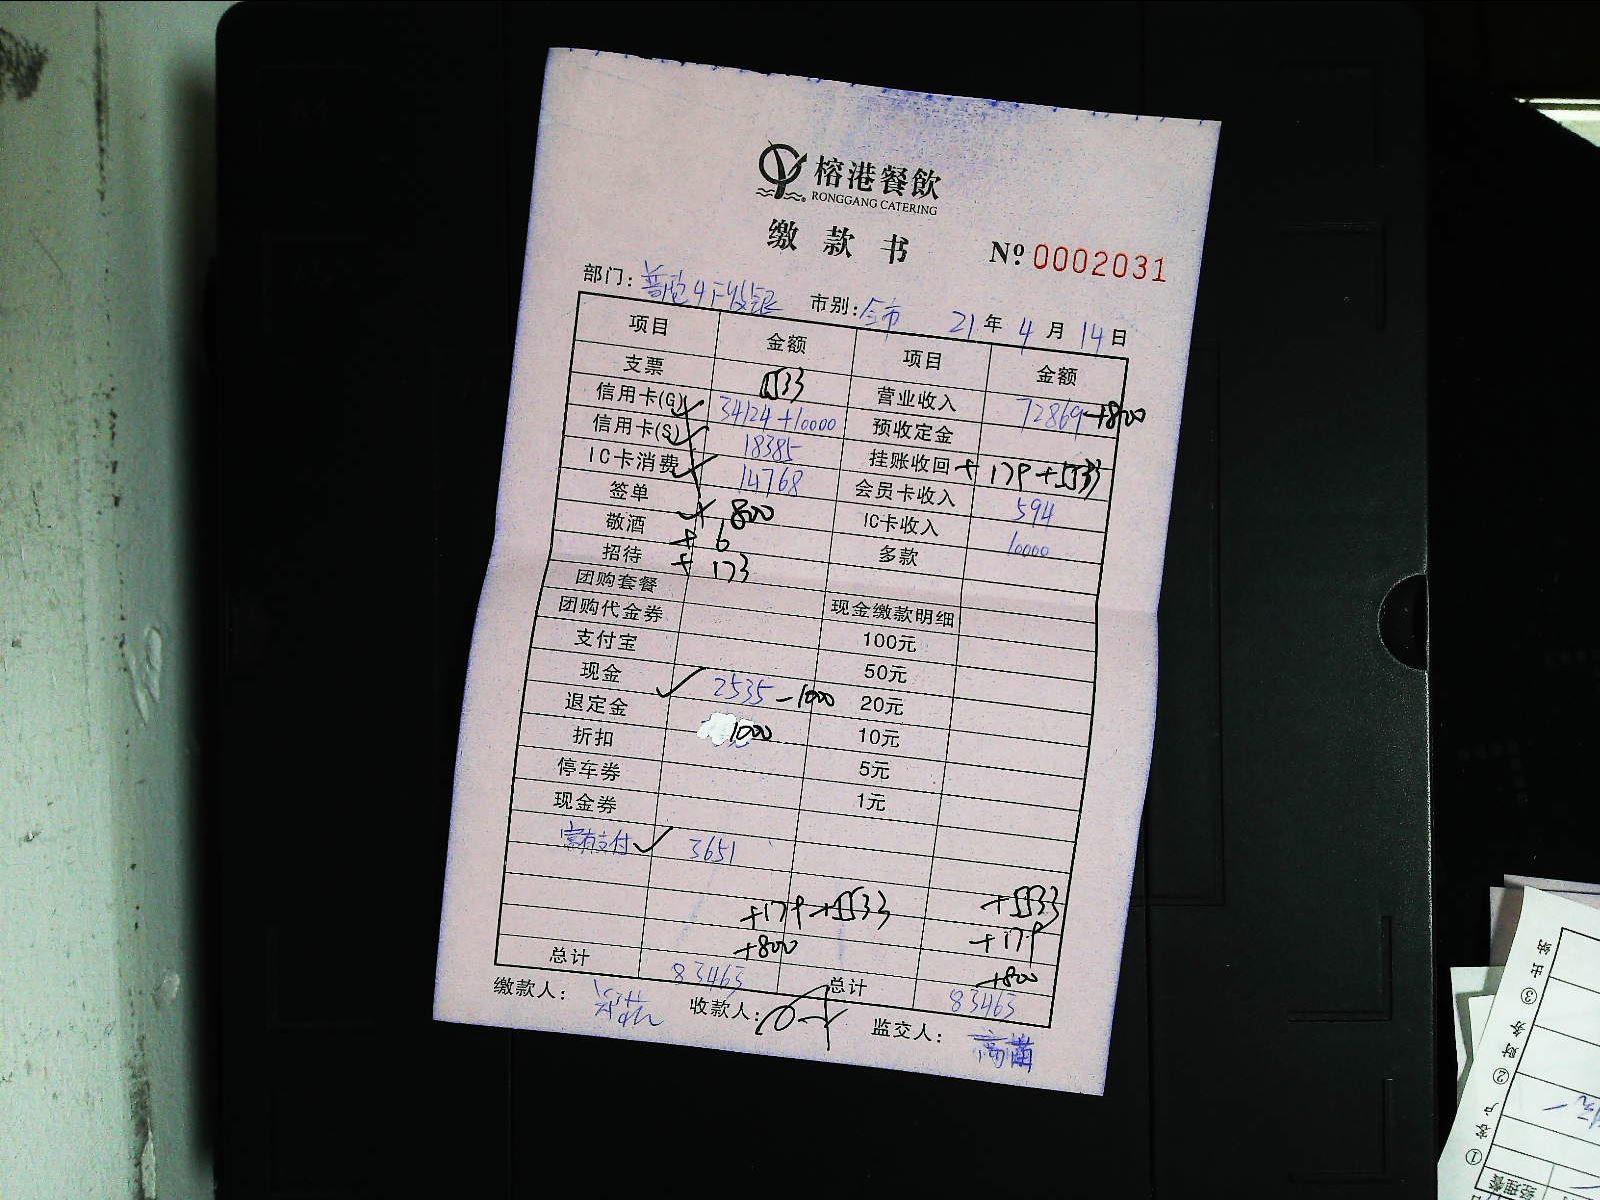 榕港餐飲
RONGGANG CATERING
缴 款 书 № 0002031
部门: 4F收银 市别: 全市 21 年 4 月 14 日
项目 金额 项目 金额
支票 5533 营业收入 72869+800
信用卡(G) 34124+10000 预收定金
信用卡(S) 18385 挂账收回 + 179+5533
IC卡消费 14768 会员卡收入 594
签单 800 IC卡收入 10000
敬酒 + 6 多款
招待 + 173
团购套餐 现金缴款明细
团购代金券 100元
支付宝 50元
现金 2535-1000 20元
退定金 1000 10元
折扣 5元
停车券 1元
现金券
支付 3651
+179+5533 +5533
+800 +179
+800
总计 83463 总计 83463
缴款人: 收款人: 监交人:
① 客户 ② 财务 ③ 出纳
经理签